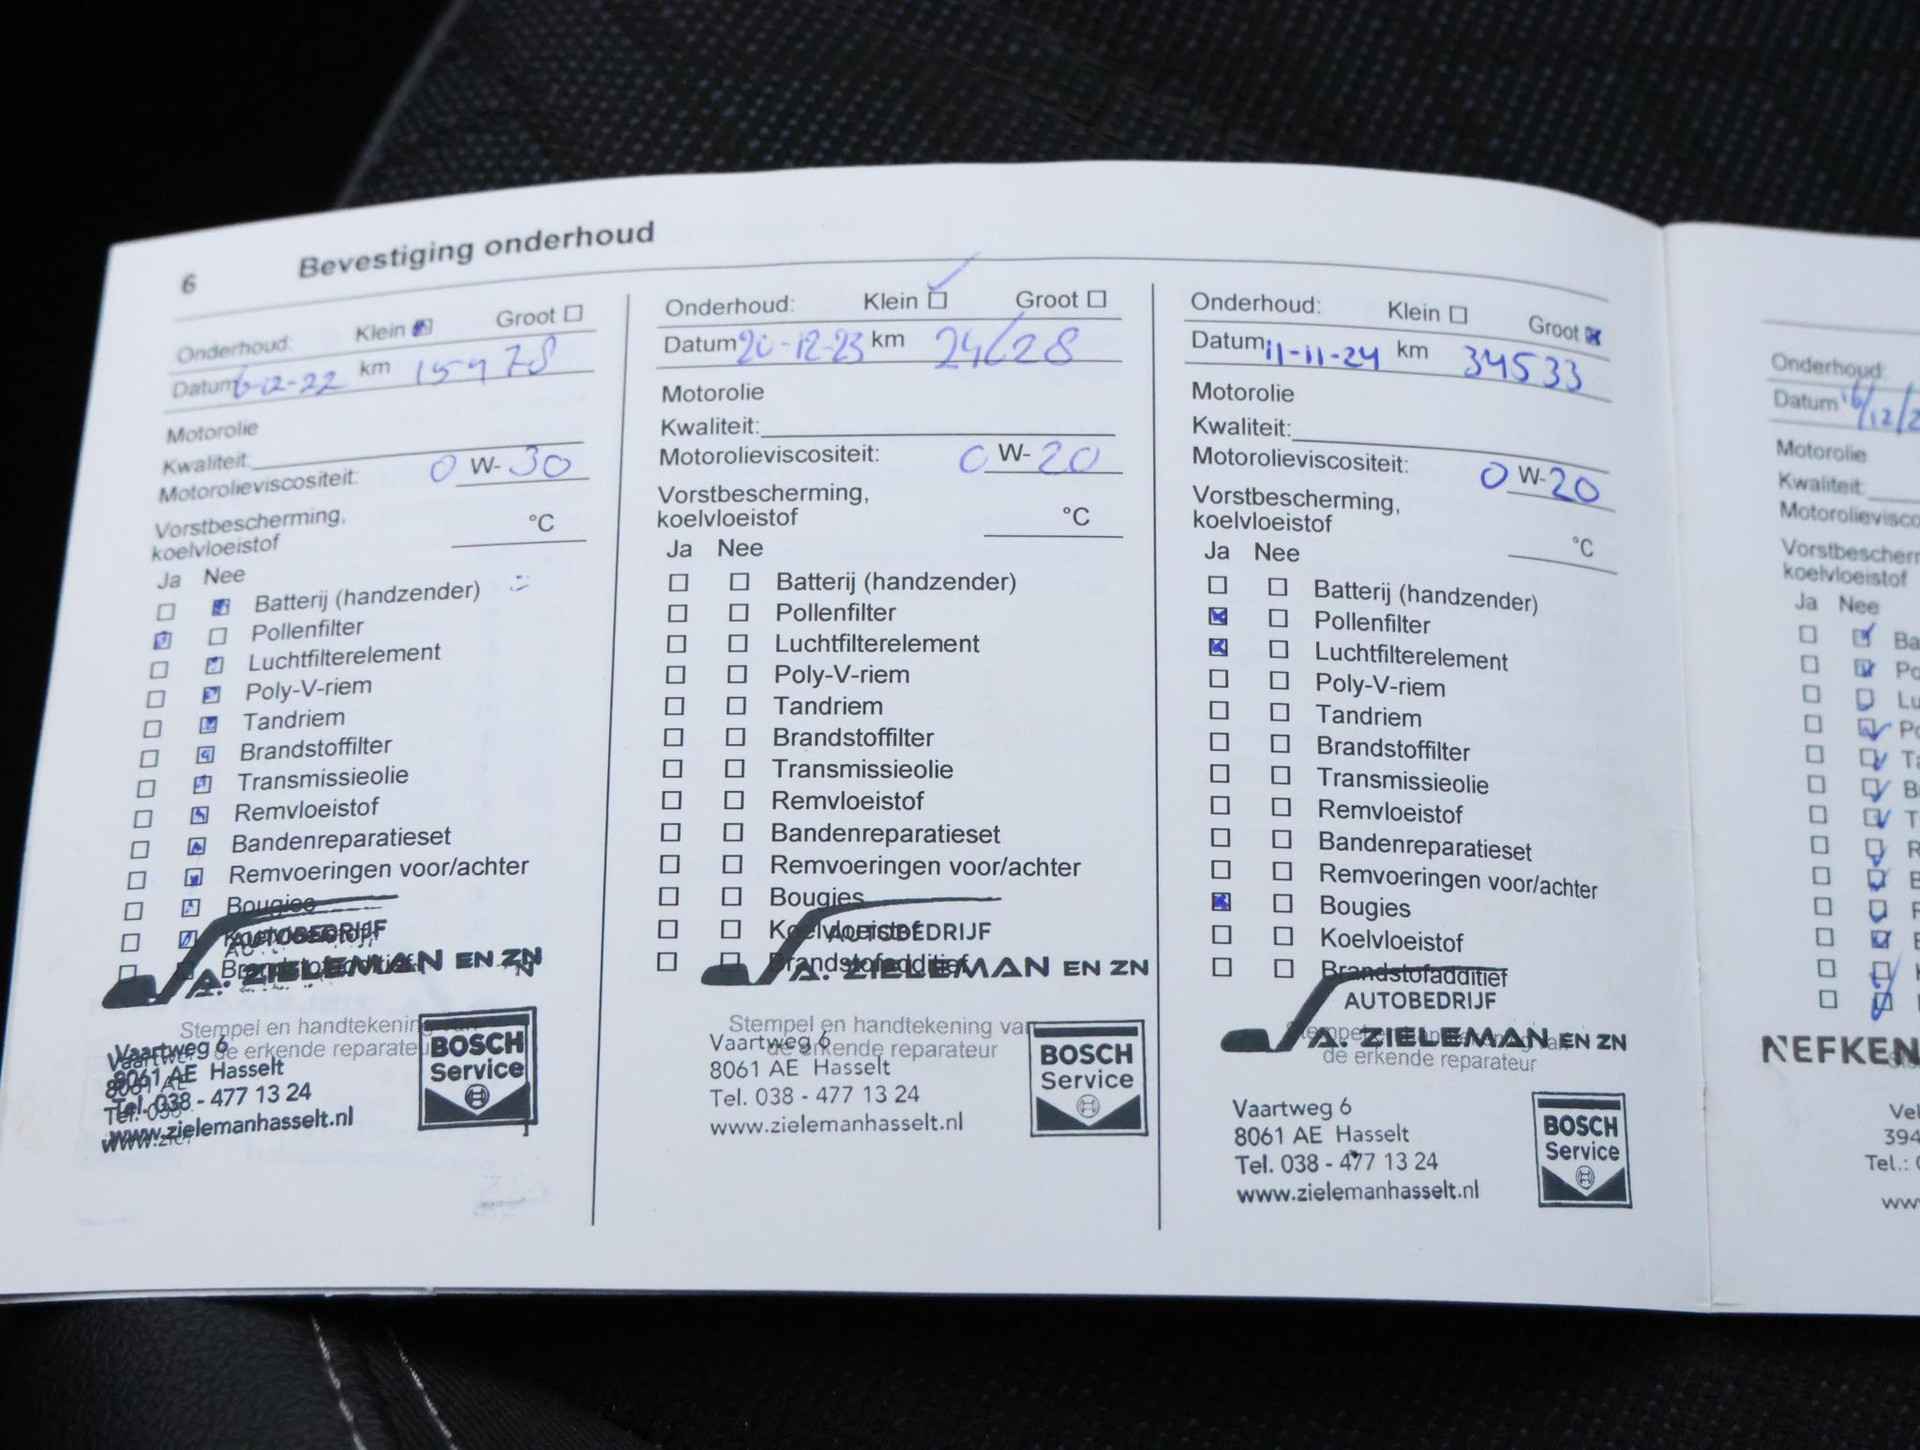 6 Bevestiging onderhoud
Onderhoud: Klein Groot
Datum 6-12-22 km 15978
Motorolie
Kwaliteit:
Motorolieviscositeit: 0 W-30
Vorstbescherming,
koelvloeistof °C
Ja Nee
Batterij (handzender)
Pollenfilter
Luchtfilterelement
Poly-V-riem
Tandriem
Brandstoffilter
Transmissieolie
Remvloeistof
Bandenreparatieset
Remvoeringen voor/achter
Bougies
AUTOBEDRIJF
A. ZIELEMAN EN ZN
Stempel en handtekening van
de erkende reparateur
Vaartweg 6
8061 AE Hasselt
Tel. 038 - 477 13 24
www.zielemanhasselt.nl
BOSCH
Service
Onderhoud: Klein Groot
Datum 20-12-23 km 24628
Motorolie
Kwaliteit:
Motorolieviscositeit: 0 W-20
Vorstbescherming,
koelvloeistof °C
Ja Nee
Batterij (handzender)
Pollenfilter
Luchtfilterelement
Poly-V-riem
Tandriem
Brandstoffilter
Transmissieolie
Remvloeistof
Bandenreparatieset
Remvoeringen voor/achter
Bougies
Koelvloeistof
Brandstofadditief
AUTOBEDRIJF
A. ZIELEMAN EN ZN
Stempel en handtekening van
de erkende reparateur
Vaartweg 6
8061 AE Hasselt
Tel. 038 - 477 13 24
www.zielemanhasselt.nl
BOSCH
Service
Onderhoud: Klein Groot
Datum 11-11-24 km 34533
Motorolie
Kwaliteit:
Motorolieviscositeit: 0 W-20
Vorstbescherming,
koelvloeistof °C
Ja Nee
Batterij (handzender)
Pollenfilter
Luchtfilterelement
Poly-V-riem
Tandriem
Brandstoffilter
Transmissieolie
Remvloeistof
Bandenreparatieset
Remvoeringen voor/achter
Bougies
Koelvloeistof
Brandstofadditief
AUTOBEDRIJF
A. ZIELEMAN EN ZN
de erkende reparateur
Vaartweg 6
8061 AE Hasselt
Tel. 038 - 477 13 24
www.zielemanhasselt.nl
BOSCH
Service
Onderhoud:
Datum 16/12/2
Motorolie
Kwaliteit:
Motorolievisco
Vorstbescherm
koelvloeistof
Ja Nee
Ba
Po
Lu
Po
Ta
B
T
R
B
NEFKEN
Vel
394
Tel.:
ww